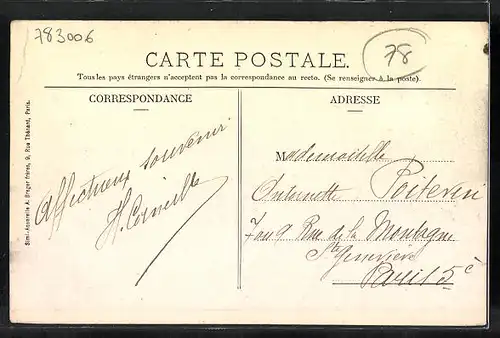 783006
78
CARTE POSTALE.
Tous les pays étrangers n'acceptent pas la correspondance au recto. (Se renseigner à la poste).
CORRESPONDANCE
ADRESSE
Affectueux souvenir
Mademoiselle
Antoinette Poitevin
Rue de la Montagne
Ste Geneviève
Paris 5e
Simi-Aquarelle A. Breger frères, 9, Rue Thénard, Paris.